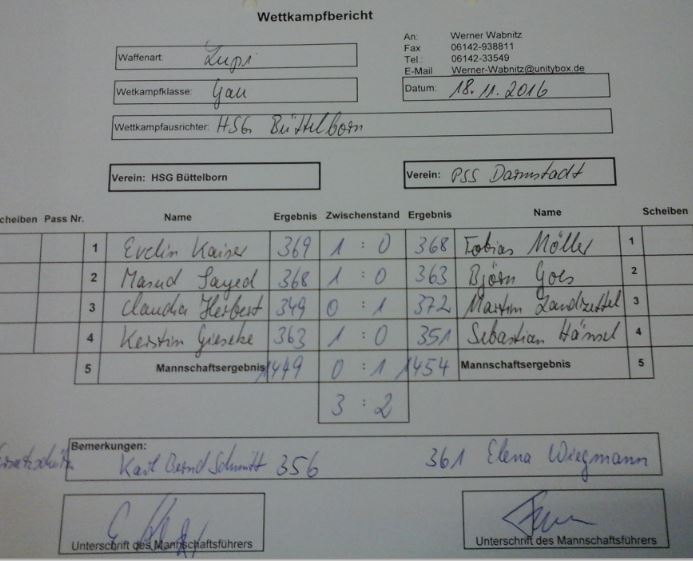 Wettkampfbericht
An: Werner Wabnitz
Fax 06142-938811
Tel.: 06142-33549
E-Mail Werner-Wabnitz@unitybox.de
Waffenart: Lupi
Wetkampfklasse: Gau
Datum: 18.11.2016
Wettkampfausrichter: HSG Büttelborn
Verein: HSG Büttelborn
Verein: PSS Darmstadt
cheiben Pass Nr. Name Ergebnis Zwischenstand Ergebnis Name Scheiben
1 Evelin Kaiser 369 1 : 0 368 Tobias Möller 1
2 Masud Sayed 368 1 : 0 363 Björn Goes 2
3 Claudia Herbert 349 0 : 1 372 Martin Landzettel 3
4 Kerstin Gieseke 363 1 : 0 351 Sebastian Hänsel 4
5 Mannschaftsergebnis 1449 0 : 1 1454 Mannschaftsergebnis 5
3 : 2
Bemerkungen:
Karl Bernd Schmitt 356 361 Elena Wiegmann
Unterschrift des Mannschaftsführers Unterschrift des Mannschaftsführers